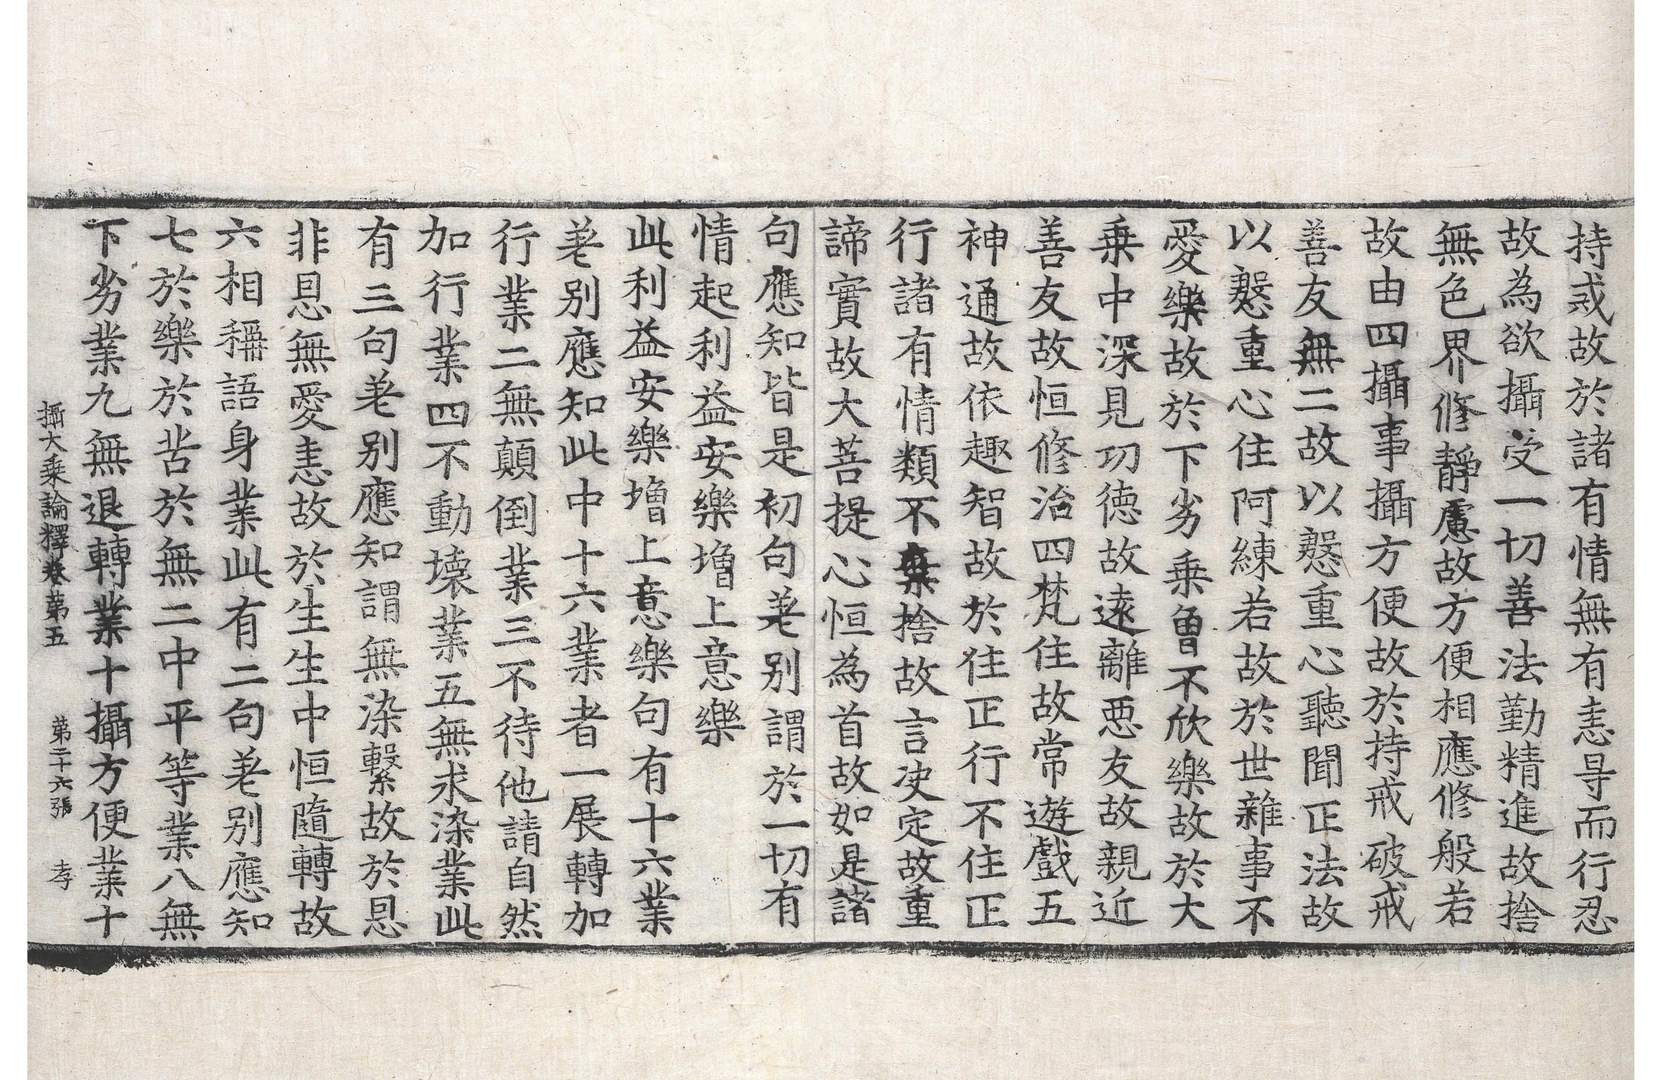 持戒故於諸有情無有恚㝵而行忍
故為欲攝受一切善法勤精進故捨
無色界修靜慮故方便相應修般若
故由四攝事攝方便故於持戒破戒
善友無二故以慇重心聽聞正法故
以慇重心住阿練若故於世雜事不
愛樂故於下劣乗曾不欣樂故於大
乗中深見功徳故遠離悪友故親近
善友故恒修治四梵住故常遊戲五
神通故依趣智故於住正行不住正
行諸有情類不棄捨故言决定故重
諦實故大菩提心恒為首故如是諸
句應知皆是初句差別謂於一切有
情起利益安樂增上意樂
此利益安樂增上意樂句有十六業
差別應知此中十六業者一展轉加
行業二無顛倒業三不待他請自然
加行業四不動壊業五無求染業此
有三句差別應知謂無染繫故於恩
非恩無愛恚故於生生中恒隨轉故
六相稱語身業此有二句差別應知
七於樂於苦於無二中平等業八無
下劣業九無退轉業十攝方便業十
攝大乗論釋卷第五　第二十六張　孝